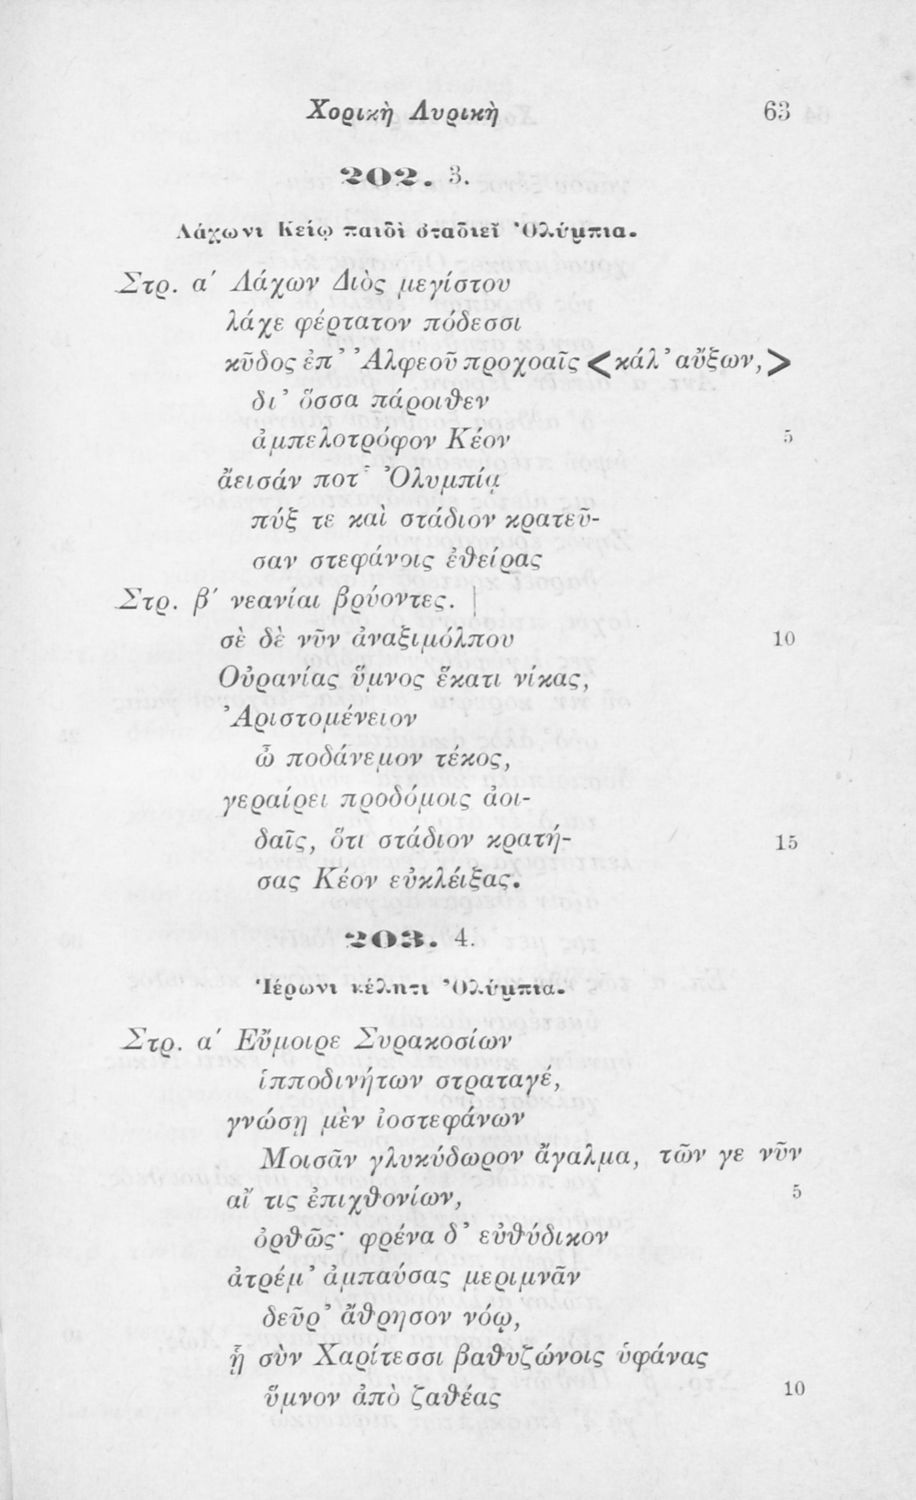 Χορικὴ Λυρικὴ 63
202. 3.
Λάχωνι Κείῳ παιδὶ σταδιεῖ Ὀλύμπια.
Στρ. α΄ Λάχων Διὸς μεγίστου
λάχε φέρτατον πόδεσσι
κῦδος ἐπ᾽ Ἀλφεοῦ προχοαῖς <κάλ᾽ αὔξων,>
δι᾽ ὅσσα πάροιθεν
ἀμπελοτρόφον Κέον 5
ἄεισάν ποτ᾽ Ὀλυμπίᾳ
πύξ τε καὶ στάδιον κρατεῦ-
σαν στεφάνοις ἐθείρας
Στρ. β΄ νεανίαι βρύοντες.
σὲ δὲ νῦν ἀναξιμόλπου 10
Οὐρανίας ὕμνος ἕκατι νίκας,
Ἀριστομένειον
ὦ ποδάνεμον τέκος,
γεραίρει προδόμοις ἀοι-
δαῖς, ὅτι στάδιον κρατή- 15
σας Κέον εὐκλέιξας.
203. 4.
Ἱέρωνι κέλητι Ὀλύμπια.
Στρ. α΄ Εὔμοιρε Συρακοσίων
ἱπποδινήτων στραταγέ,
γνώσῃ μὲν ἰοστεφάνων
Μοισᾶν γλυκύδωρον ἄγαλμα, τῶν γε νῦν
αἴ τις ἐπιχθονίων, 5
ὀρθῶς· φρένα δ᾽ εὐθύδικον
ἀτρέμ᾽ ἀμπαύσας μεριμνᾶν
δεῦρ᾽ ἄθρησον νόῳ,
ᾗ σὺν Χαρίτεσσι βαθυζώνοις ὑφάνας
ὕμνον ἀπὸ ζαθέας 10